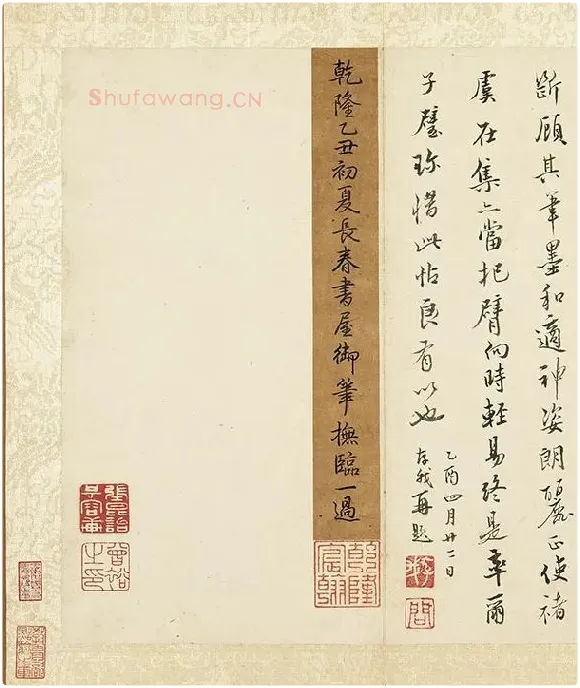 斷顧其筆墨和適神姿朗麗正使褚
虞在集亦當把臂向時輕易終是率爾
子璧珍惜此帖良有以也
乙酉四月廿二日
存我再題
乾隆乙丑初夏長春書屋御筆撫臨一過
乾隆宸翰
Shufawang.CN